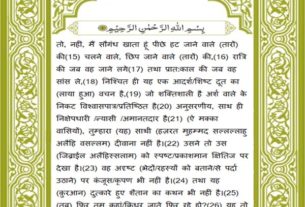 بِسْمِ اللهِ الرَّحْمٰنِ الرَّحِيْمِ
तो, नहीं, मैं सौगंध खाता हूँ पीछे हट जाने वाले (तारों)
की(15) चलने वाले, छिप जाने वाले (तारों) की,(16) रात्रि
की जब वह जाने लगे(17) तथा प्रात:काल की जब वह
सांस ले,(18) निश्चित ही यह एक आदर्श/शिष्ट दूत का
(लाया हुआ) वचन है,(19) जो शक्तिशाली है अर्श वाले के
निकट विश्वासपात्र/प्रतिष्ठित है(20) अनुसरणीय, साथ ही
निक्षेपधारी /न्यासी /अमानतदार है(21) (ऐ मक्का
वासियो), तुम्हारा (यह) साथी (हज़रत मुहम्मद सल्लल्लाहु
अलैहि वसल्लम) दीवाना नहीं है।(22) उसने तो उस
(जिब्रईल अलैहिस्सलाम) को स्पष्ट/प्रकाशमान क्षितिज पर
देखा है।(23) वह अदृष्ट (भेदों/रहस्यों को बताने/से पर्दा
उठाने) पर कंजूस/कृपण भी नहीं है।(24) तथा यह
(क़ुरआन) दुत्कारे हुए शैतान का कथन भी नहीं है।(25)
(तब) फिर तुम कहां/किधर जाते फिर रहे हो?(26) यह तो